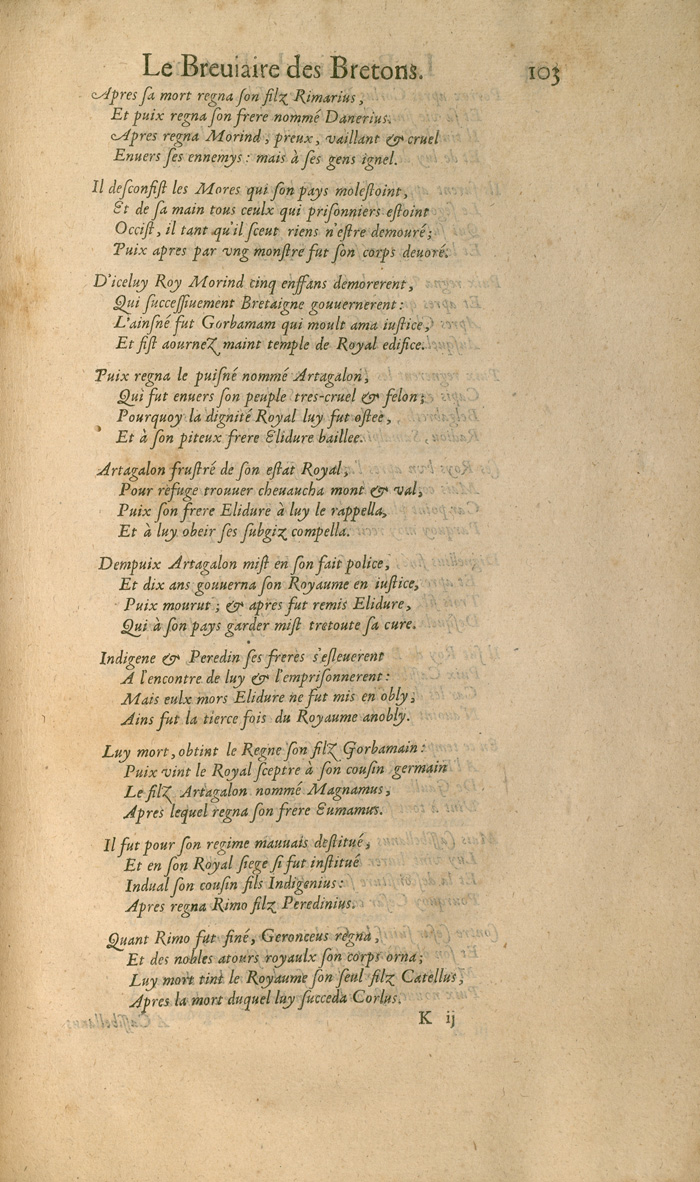 Le Breuiaire des Bretons. 103
Apres ſa mort regna ſon filz Rimarius,
Et puix regna ſon frere nommé Danerius.
Apres regna Morind, preux, vaillant & cruel
Enuers ſes ennemys: mais à ſes gens ignel.
Il deſconfiſt les Mores qui ſon pays moleſtoint,
Et de ſa main tous ceulx qui priſonniers eſtoint
Occiſt, il tant qu'il ſceut riens n'eſtre demouré;
Puix apres par vng monſtre fut ſon corps deuoré.
D'iceluy Roy Morind cinq enffans demorerent,
Qui ſucceſſiuement Bretaigne gouuernerent:
L'ainſné fut Gorbamam qui moult ama iuſtice,
Et fiſt aournez maint temple de Royal edifice.
Puix regna le puiſné nommé Artagalon,
Qui fut enuers ſon peuple tres-cruel & felon;
Pourquoy la dignité Royal luy fut oſtee,
Et à ſon piteux frere Elidure baillee.
Artagalon fruſtré de ſon eſtat Royal,
Pour refuge trouuer cheuaucha mont & val,
Puix ſon frere Elidure à luy le rappella,
Et à luy obeir ſes ſubgiz compella.
Dempuix Artagalon miſt en ſon fait police,
Et dix ans gouuerna ſon Royaume en iuſtice,
Puix mourut; & apres fut remis Elidure,
Qui à ſon pays garder miſt tretoute ſa cure.
Indigene & Peredin ſes freres s'eſleuerent
A l'encontre de luy & l'empriſonnerent:
Mais eulx mors Elidure ne fut mis en obly,
Ains fut la tierce fois du Royaume anobly.
Luy mort, obtint le Regne ſon filz Gorbamain:
Puix vint le Royal ſceptre à ſon couſin germain
Le filz Artagalon nommé Magnamus,
Apres lequel regna ſon frere Eumamus.
Il fut pour ſon regime mauuais deſtitué,
Et en ſon Royal ſiege ſi fut inſtitué
Indual ſon couſin fils Indigenius:
Apres regna Rimo filz Peredinius.
Quant Rimo fut finé, Geronceus regna,
Et des nobles atours royaulx ſon corps orna;
Luy mort tint le Royaume ſon ſeul filz Catellus,
Apres la mort duquel luy ſucceda Corlus.
K ij